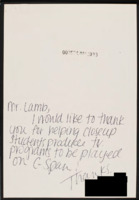 Mr. Lamb,
I would like to thank
you for helping closeup
students produce tv
programs to be played
on C-Span.
Thanks!